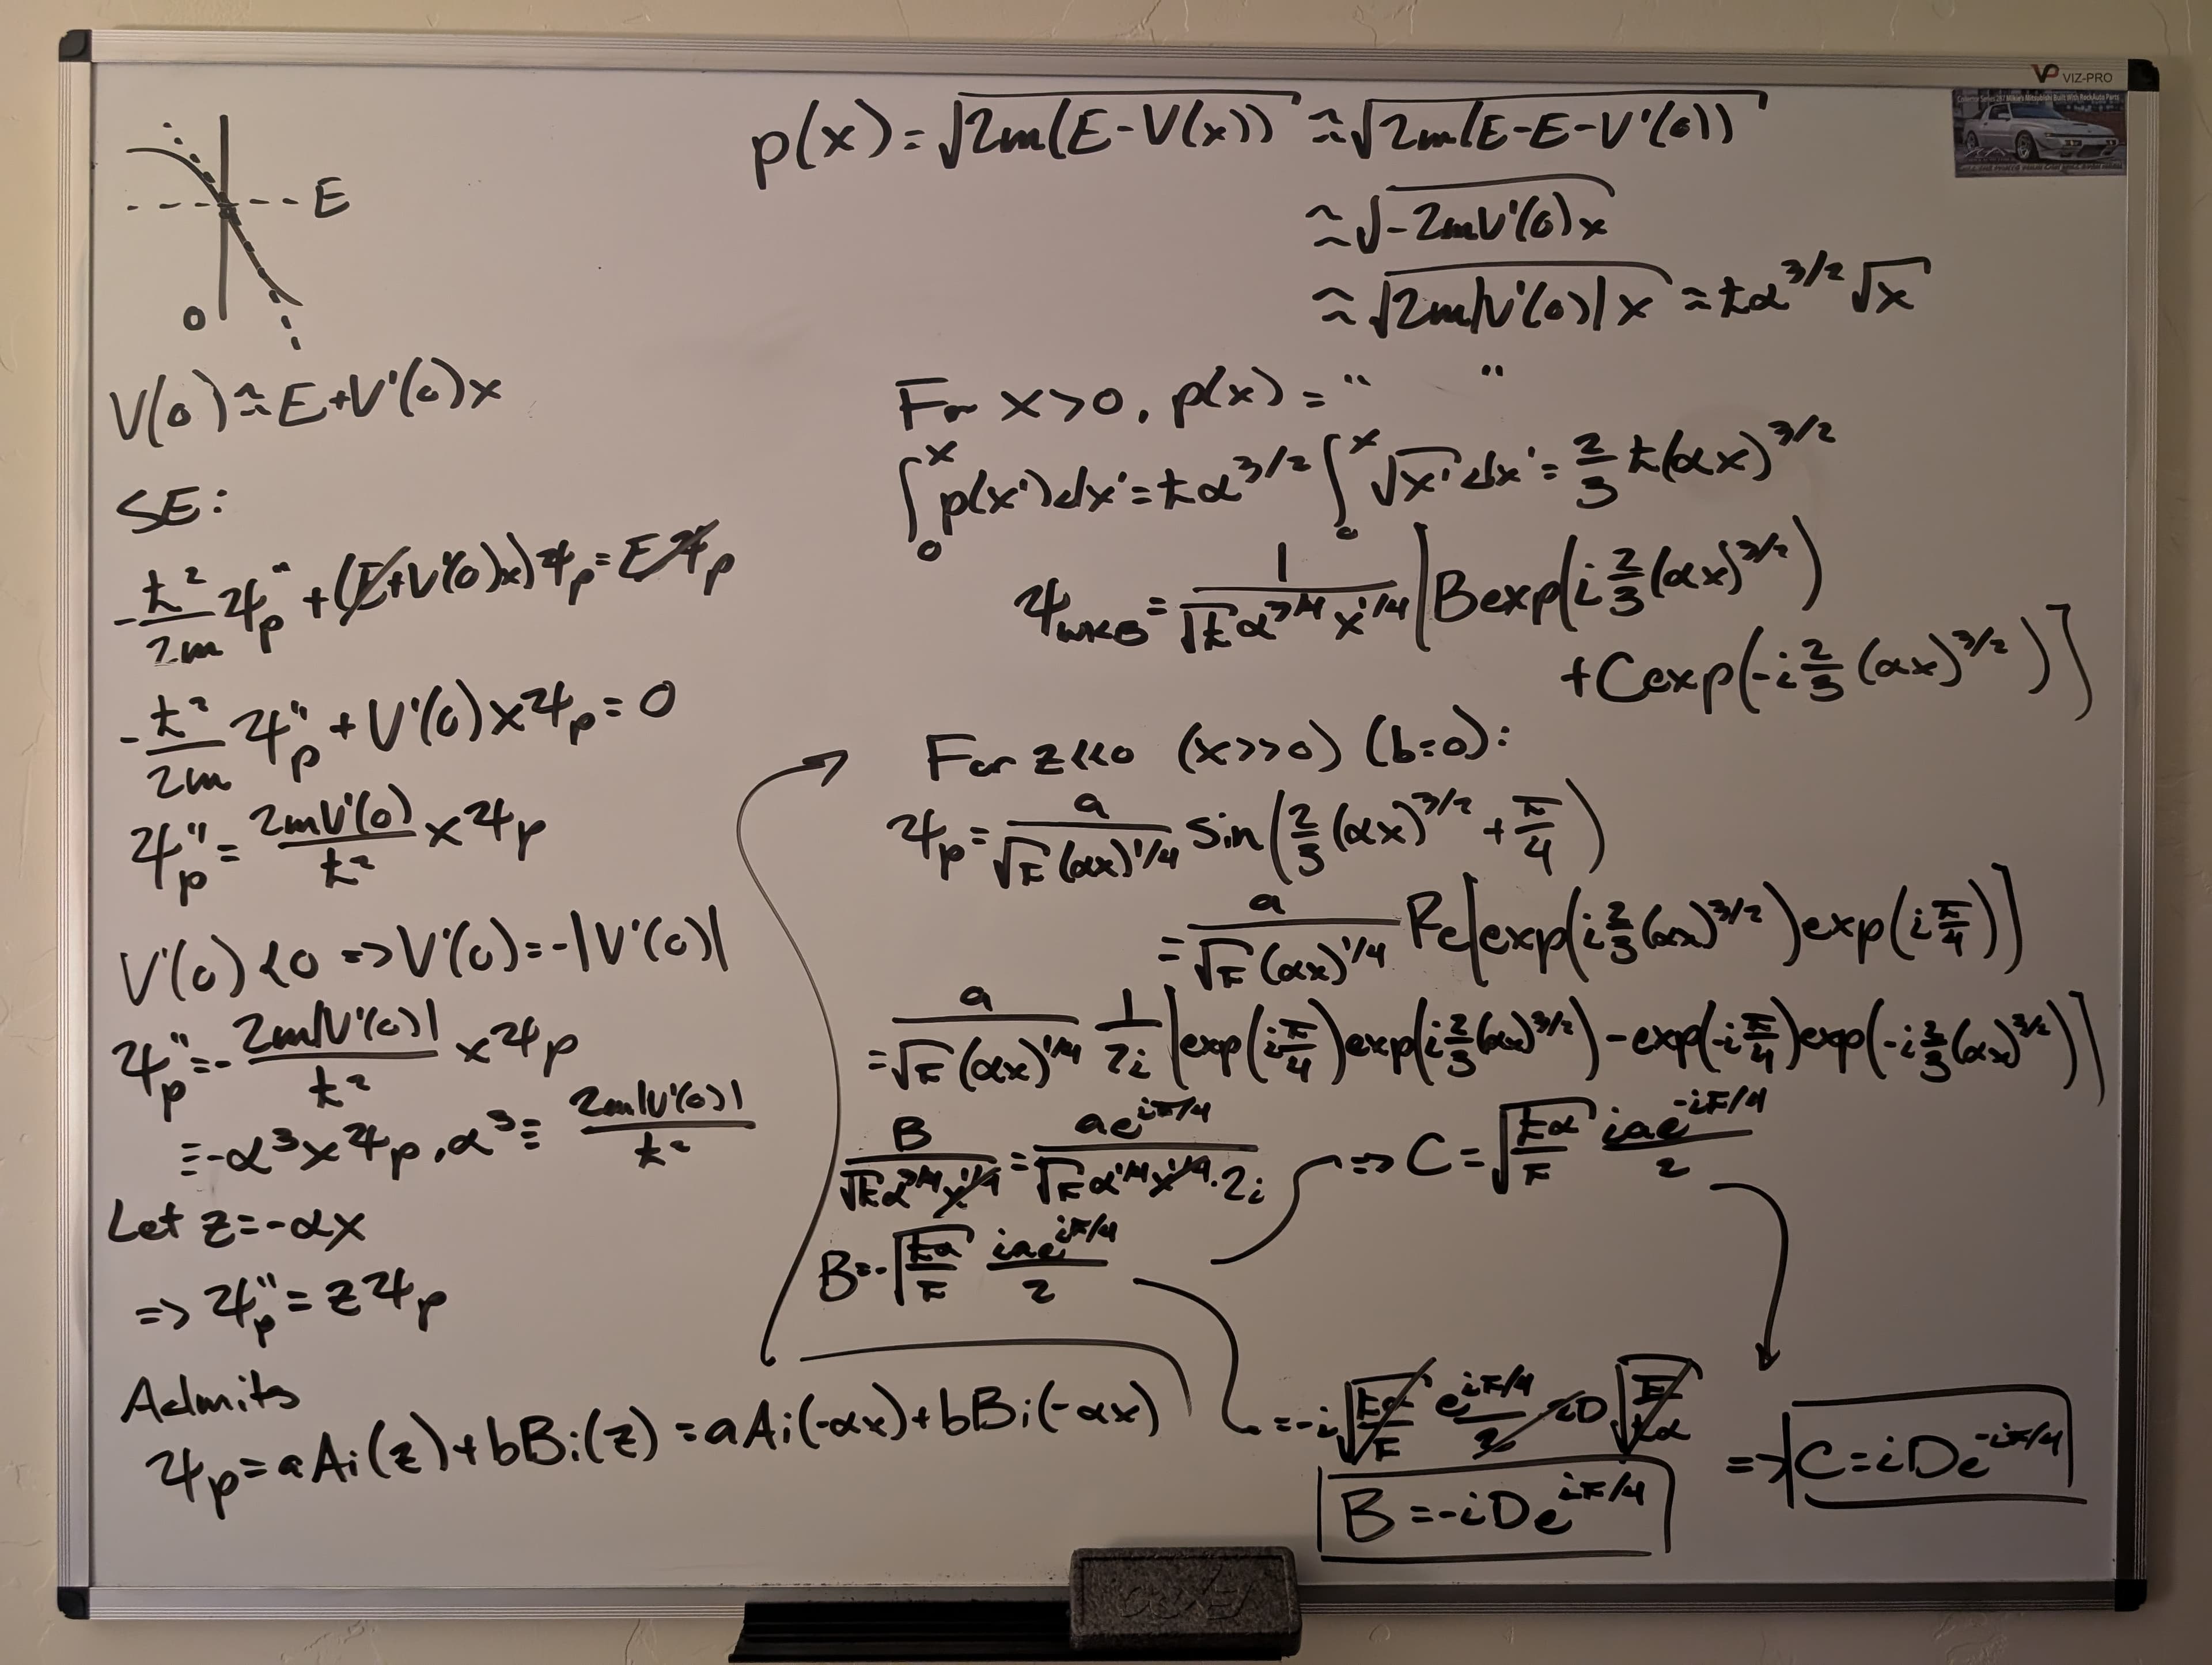 VP VIZ-PRO
E
0
V(0)≈E+V'(0)x
SE:
-ħ²/2m ψₚ" + (E+V'(0)x)ψₚ=Eψₚ
-ħ²/2m ψₚ" + V'(0)xψₚ=0
ψₚ"= 2mV'(0)/ħ² xψₚ
V'(0)<0 => V'(0)=-|V'(0)|
ψₚ"=- 2m|V'(0)|/ħ² xψₚ
≡-α³xψₚ, α³≡ 2m|V'(0)|/ħ²
Let z=-αx
=> ψₚ"=zψₚ
Admits
ψₚ=aAi(z)+bBi(z)=aAi(-αx)+bBi(-αx)
p(x)=√(2m(E-V(x))) ≈√(2m(E-E-V'(0)))
≈√(-2mV'(0)x)
≈√(2m|V'(0)|x) ≈ħα^(3/2)√x
For x>0, p(x)= " "
∫₀ˣ p(x')dx'=ħα^(3/2) ∫₀ˣ √x' dx'= 2/3 ħ(αx)^(3/2)
ψ_WKB= 1/(√ħ α^(3/4) x^(1/4)) [Bexp(i 2/3 (αx)^(3/2))
+Cexp(-i 2/3 (αx)^(3/2))]
For z<<0 (x>>0) (b=0):
ψₚ= a/(√π (αx)^(1/4)) sin(2/3 (αx)^(3/2) + π/4)
= a/(√π (αx)^(1/4)) Re[exp(i 2/3 (αx)^(3/2))exp(i π/4)]
= a/(√π (αx)^(1/4)) 1/2i [exp(i π/4)exp(i 2/3 (αx)^(3/2)) - exp(-i π/4)exp(-i 2/3 (αx)^(3/2))]
B/(√ħ α^(3/4) x^(1/4)) = ae^(iπ/4)/(√π α^(1/4) x^(1/4)·2i)
=> C=√(ħα/π) iae^(-iπ/4)/2
B=-√(ħα/π) iae^(iπ/4)/2
=-i√(ħα/π) e^(iπ/4)/2 2D√(π/ħα)
B=-iDe^(iπ/4)
=> C=iDe^(-iπ/4)